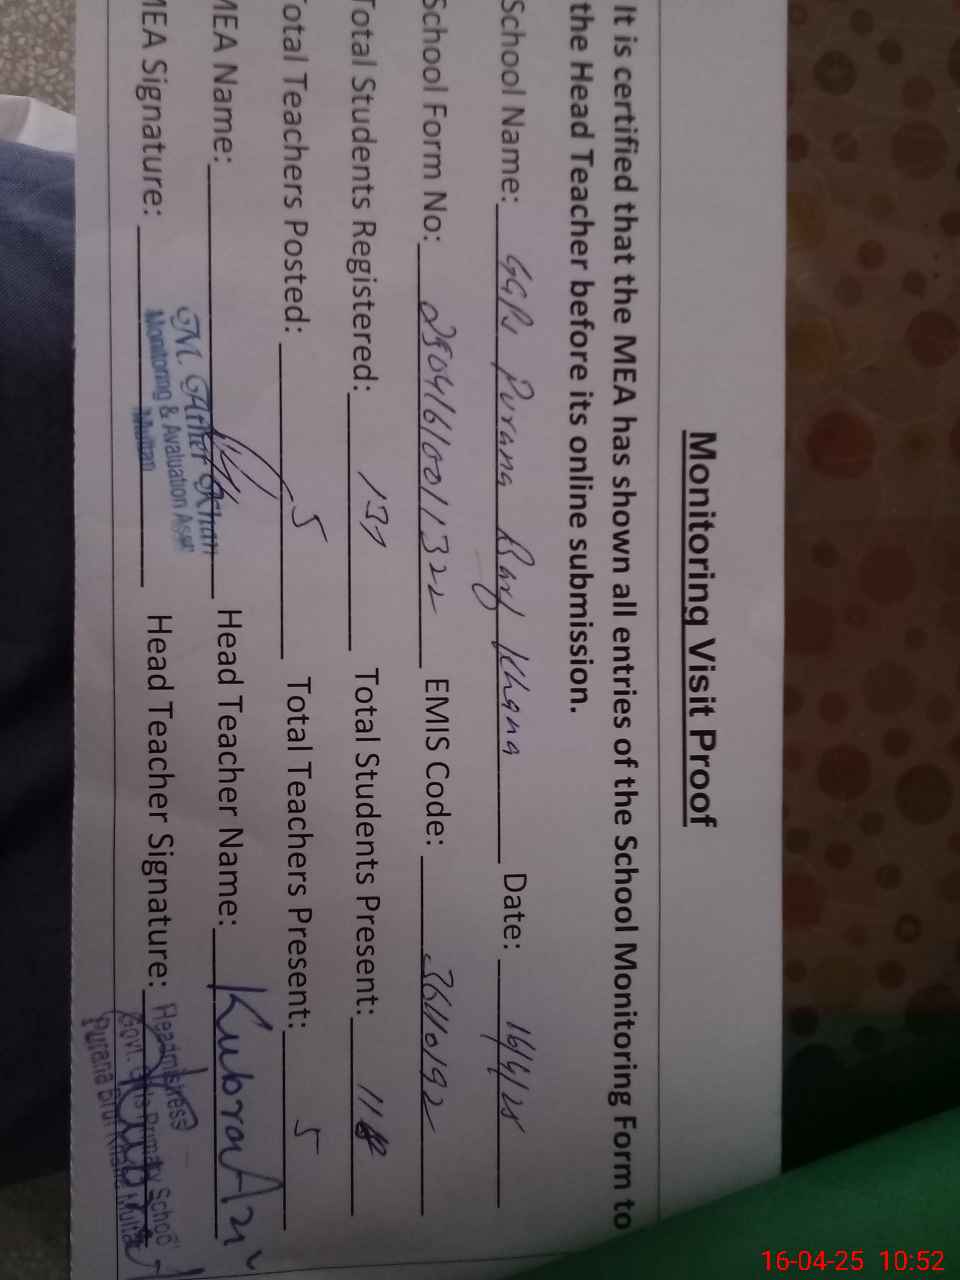 Monitoring Visit Proof
It is certified that the MEA has shown all entries of the School Monitoring Form to
the Head Teacher before its online submission.
School Name: GGPS Purana Barf Khana Date: 16/4/25
School Form No: 2504161001322 EMIS Code: 36110192
Total Students Registered: 137 Total Students Present: 11
Total Teachers Posted: 5 Total Teachers Present: 5
MEA Name: M. Ather Khan Head Teacher Name: Kubra
MEA Signature: Monitoring & Avaluation Asstt Head Teacher Signature: Headmistress
Multan Govt. Girls Primary School
Purana Multan
16-04-25 10:52